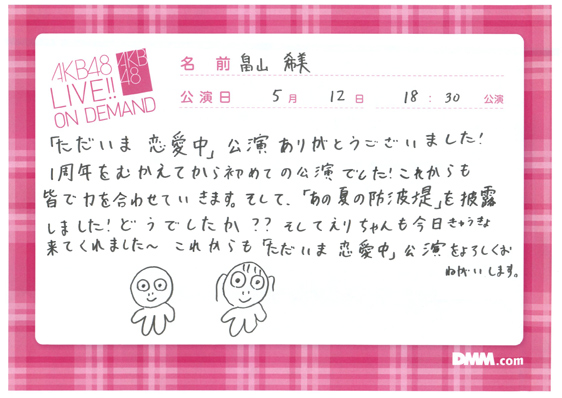 AKB48
LIVE!!
ON DEMAND
AKB
48
名前 畠山 希美
公演日 5月 12日 18:30 公演
「ただいま 恋愛中」公演ありがとうございました!
1周年をむかえてから初めての公演でした!これからも
皆で力を合わせていきます。そして、「あの夏の防波堤」を披露
しました!どうでしたか??そしてえりちゃんも今日きゅうきょ
来てくれました〜 これからも「ただいま 恋愛中」公演をよろしくお
ねがいします。
DMM.com